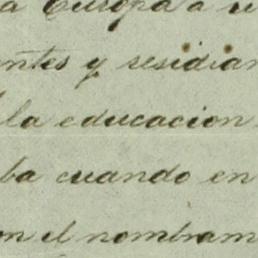 a Europa a re
entes y residian
la educacion
ba cuando en
en el nombram